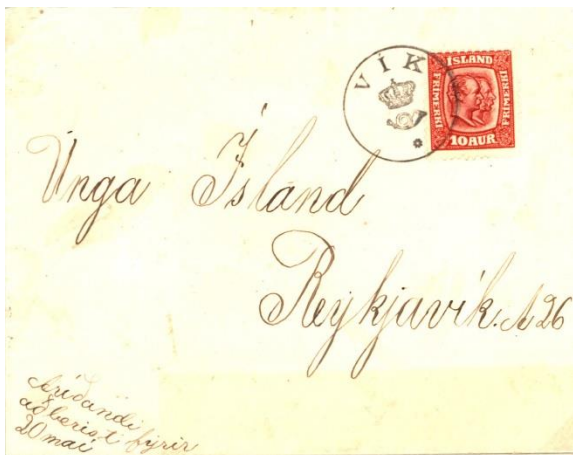 VÍK
ÍSLAND
FRÍMERKI
FRÍMERKI
10 AUR
Unga Ísland
Reykjavík. A 26
Áríðandi
að berist fyrir
20 maí